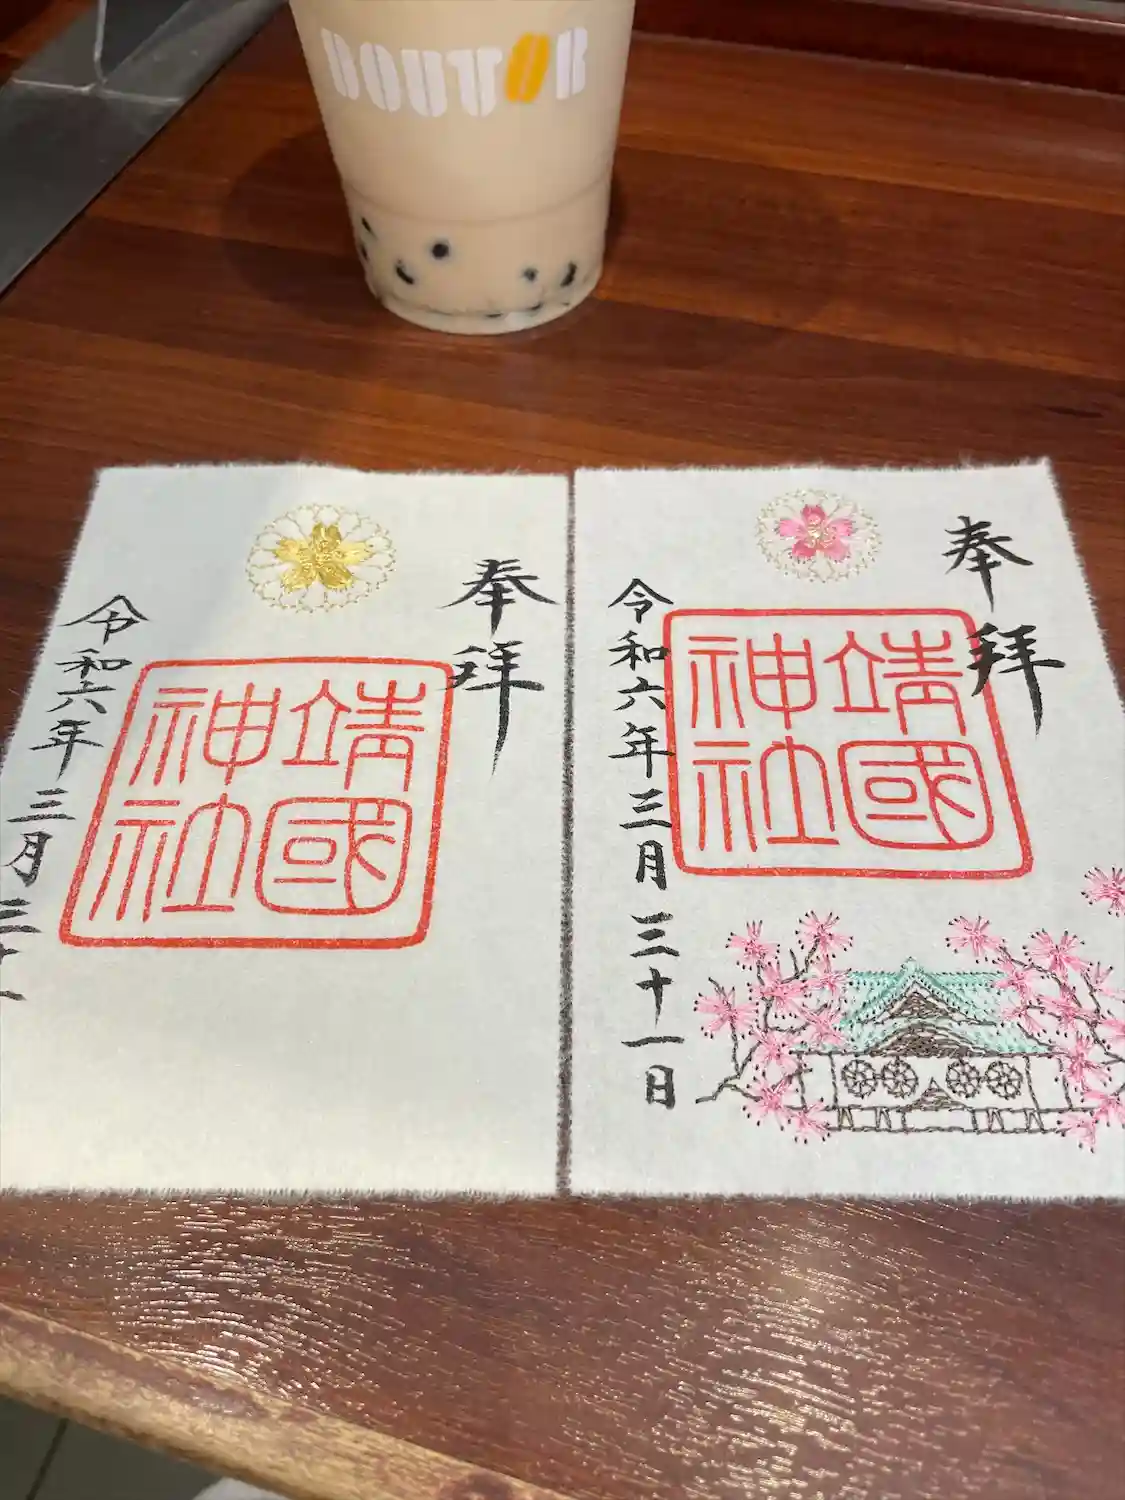 DOUTOR
奉拝
靖國
神社
令和六年三月三十一日
奉拝
靖國
神社
令和六年三月三十